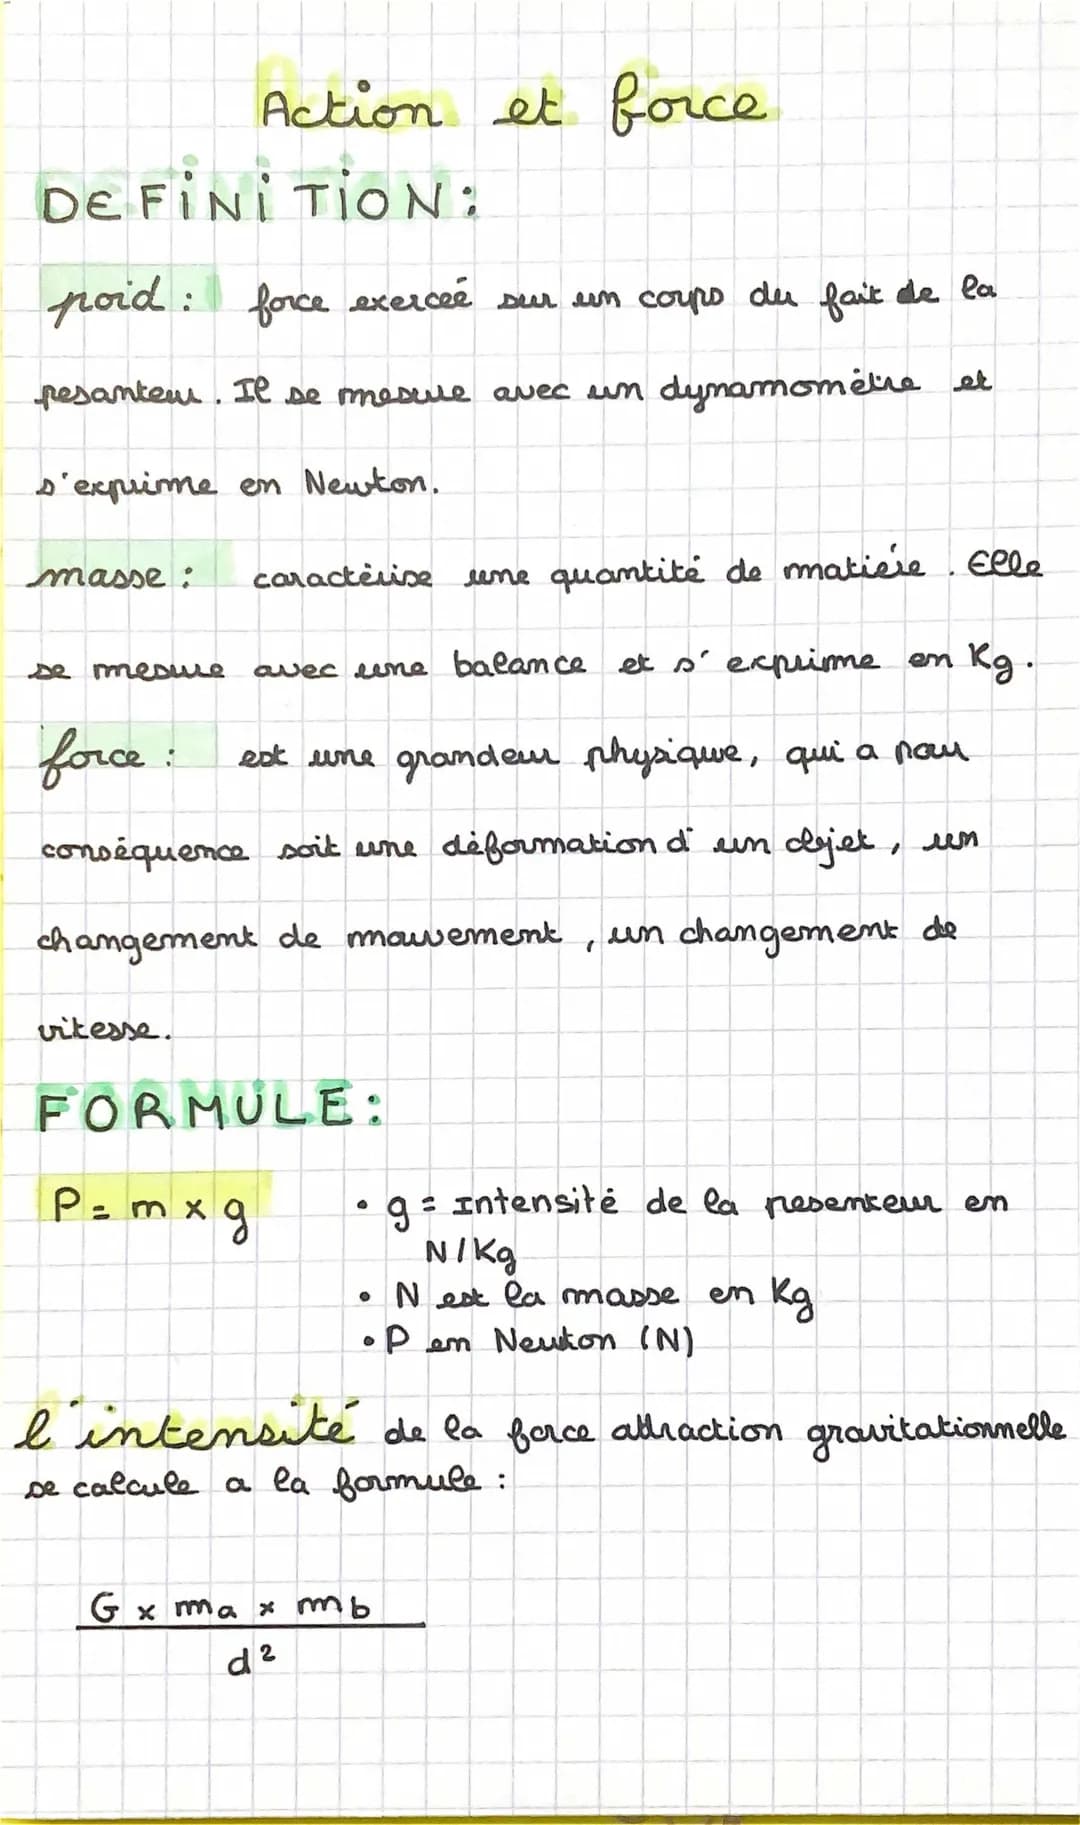 Action et force
DEFINITION:
poid : force exerceé sur un corps du fait de la
pesanteur. Il se mesure avec un dynamomètre et
s'exprime en Newton.
masse : caractérise une quantité de matiére. Elle
se mesure avec une balance et s'exprime en Kg.
force : est une grandeur physique, qui a pour
conséquence soit une déformation d'un objet, un
changement de mouvement, un changement de
vitesse.
FORMULE:
P = m x g • g = Intensité de la pesenteur en
N/Kg
• N est la masse en Kg
• P em Newton (N)
l'intensité de la force attraction gravitationnelle
se calcule a la formule :
G x ma x mb
d²